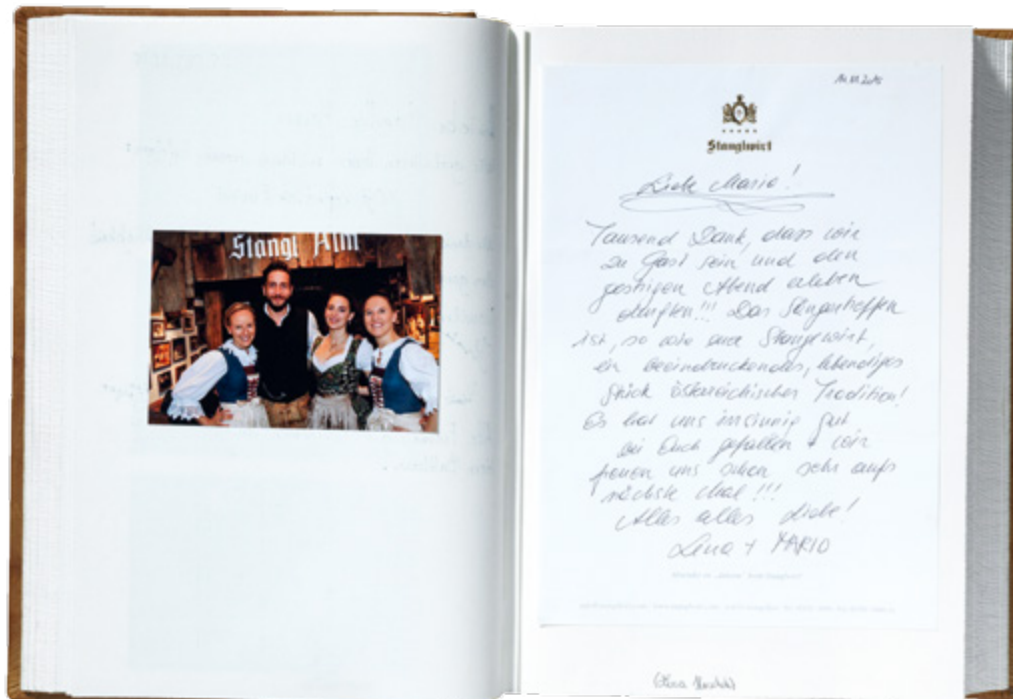 Stangl Alm
Stanglwirt
Tausend Dank, dass wir
zu Gast sein und den
gestrigen Abend erleben
durften!!! Das Sängertreffen
ist, so wie der Stanglwirt,
ein beeindruckendes, lebendiges
Stück österreichischer Tradition!
Es hat uns irrsinnig gut
bei Euch gefallen + wir
freuen uns schon sehr aufs
nächste Mal!!!
Alles alles Liebe!
Lena + MARIO